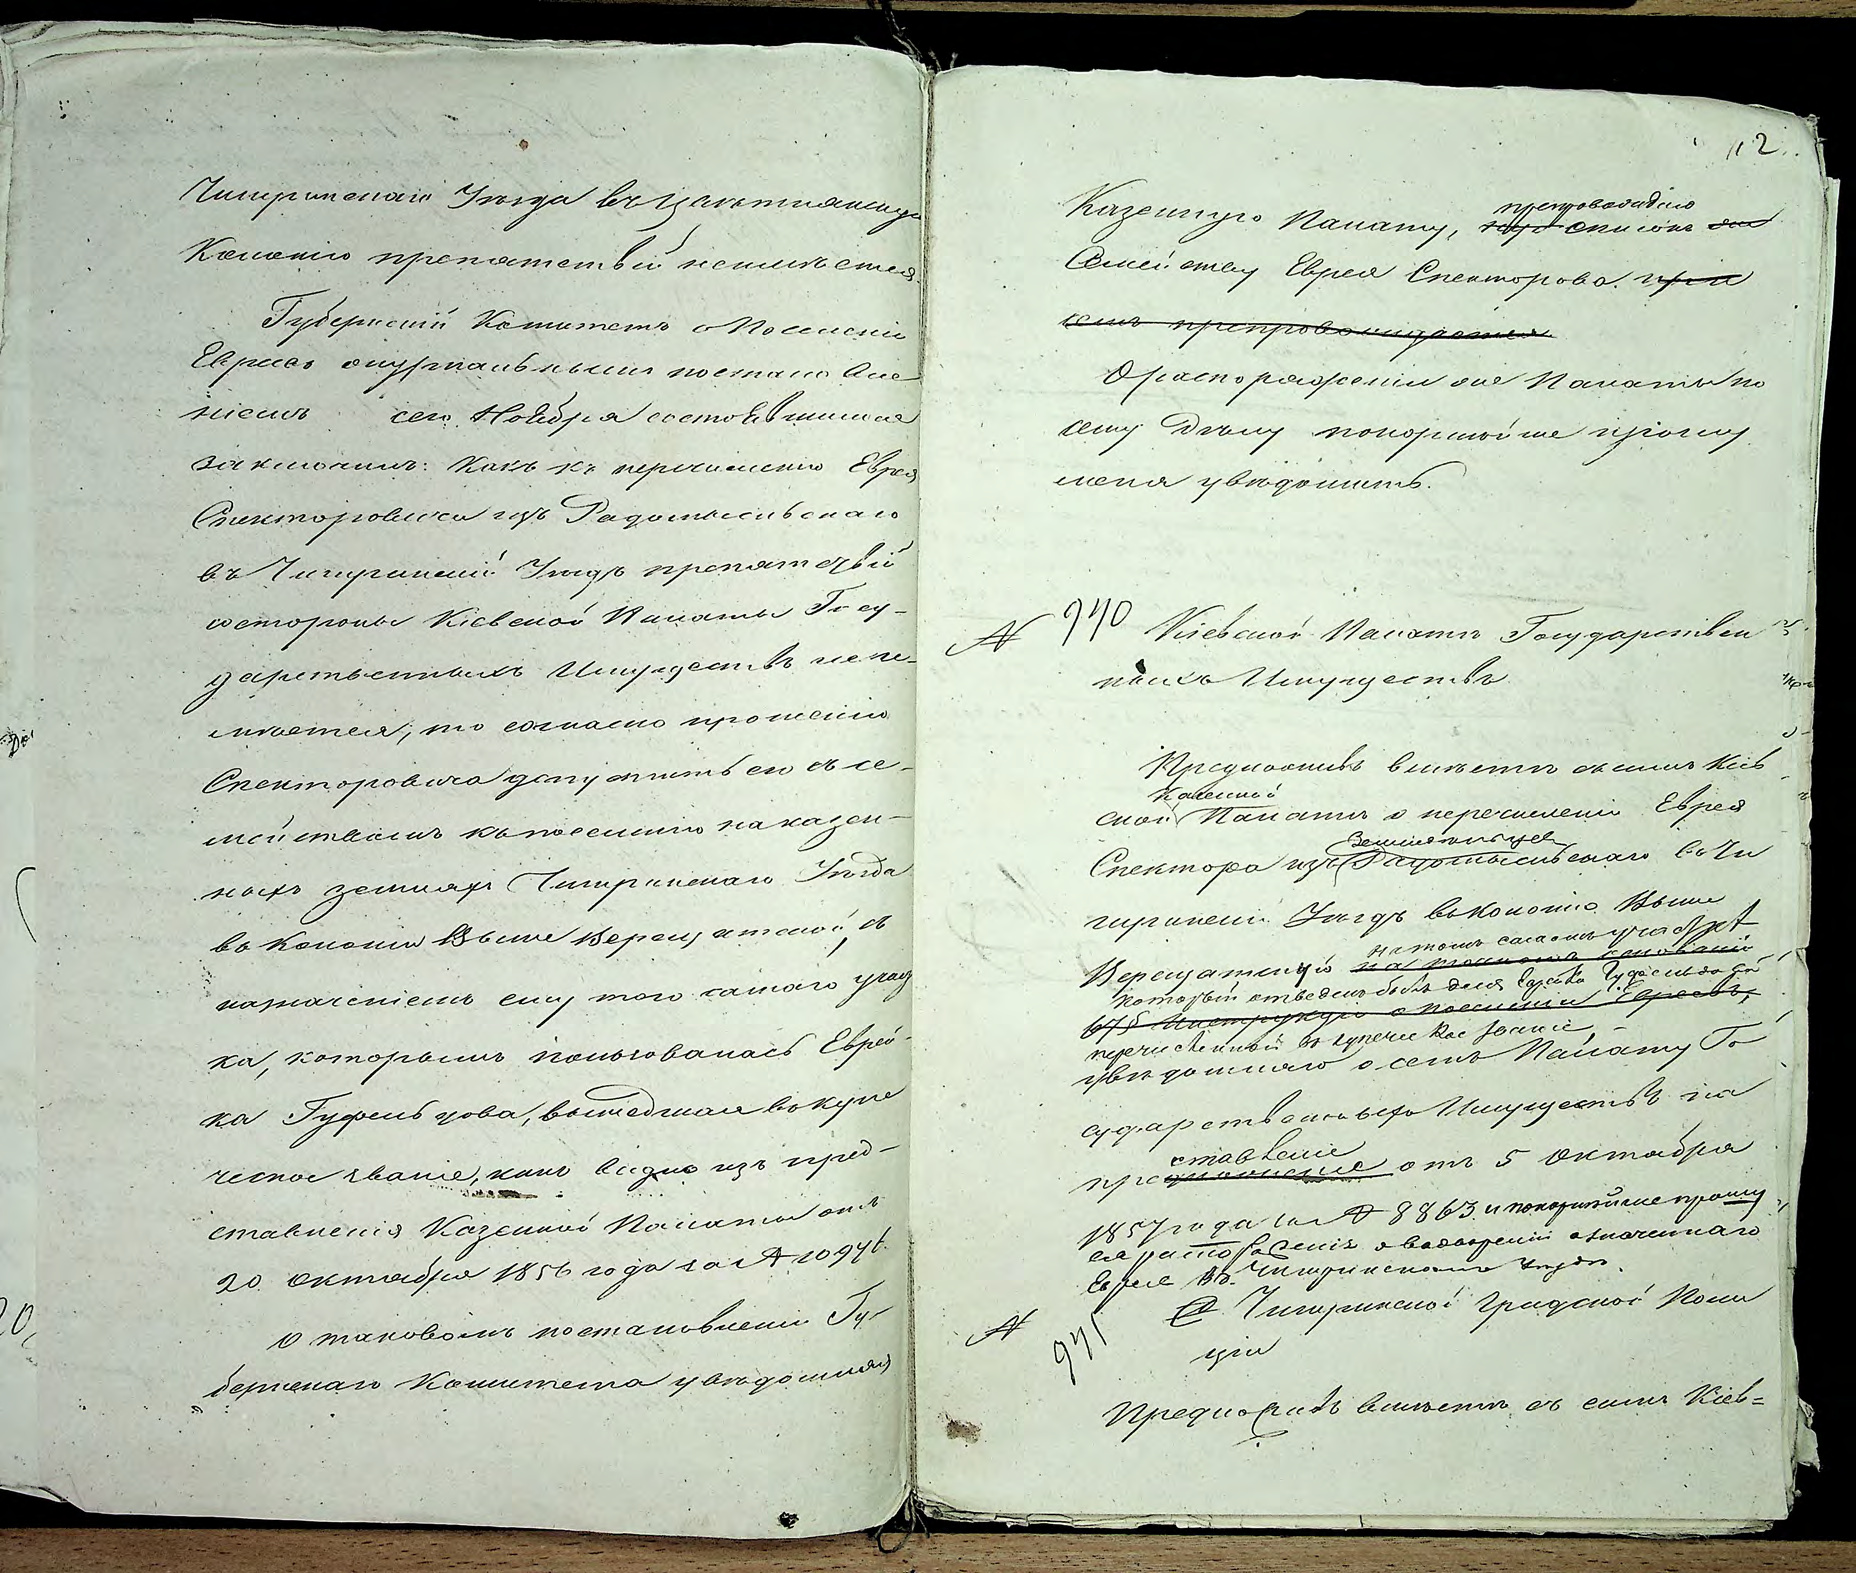 Чигиринскаго Уѣзда въ
Колонію препятствій неимѣется.
Губернскій Комитетъ о Поселеніи
Евреевъ журнальнымъ постанов
ніемъ сего Ноября состоявшимся
заключилъ: Какъ къ перечисленію Еврея
Спекторовича изъ Радомысльскаго
въ Чигиринскій Уѣздъ препятствій
состороны Кіевской Палаты Госу-
дарственныхъ Имуществъ неи-
мѣется, то согласно прошенію
Спекторовича допустить его съ се-
мействомъ къ поселенію на казен-
ныхъ земляхъ Чигиринскаго Уѣзда
въ Колоніи Выше Верещатской, съ
назначеніемъ ему того самаго участ
ка, которымъ пользовалась Еврей-
ка вышедшая въ купе
ческое званіе, какъ видно изъ пред-
ставленія Казенной Палаты отъ
20 Октября 1856 года за №
О таковомъ постановленіи Гу-
бернскаго Комитета увѣдомляя
112
Казенную Палату, препровождаю списокъ
Семейству Еврея Спекторова. при
семъ препровождается
О распоряженіи же Палаты по
сему Дѣлу покорнѣйше прошу
меня увѣдомить.
№ 940 Кіевской Палатѣ Государствен
ныхъ Имуществъ
Предложивъ вмѣстѣ съ симъ Кіев
Казенной
ской Палатѣ о перечисленіи Еврея
Земледѣльцев
Спектора изъ Радомысльскаго въ Чи
гиринскій Уѣздъ въ Колонію Выше
на томъ самомъ участкѣ
Верещатскую на основаніи
который отведенъ былъ для Еврейки
Инструкціи о поселеніи Евреевъ,
перечисленной въ купеческое званіе,
увѣдомляю о семъ Палату Го
сударственныхъ Имуществъ на
ставленіе
пред отъ 5 Октября
1857 года за № 8863 и покорнѣйше прошу
ея распоряженія о водвореніи означеннаго
Еврея въ Чигиринскомъ Уѣздѣ.
№ 941 Чигиринской Градской Поли
ціи
Предложивъ вмѣстѣ съ симъ Кіев=